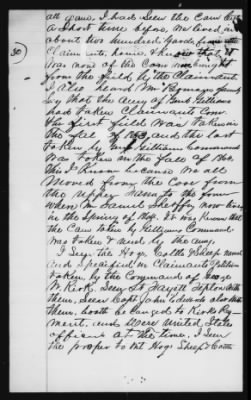 all gone. I had seen the Corn but
a short time before, we lived with
about two hundred yards from
50
Claimants, house,
was none of the Corn brought
from the field by the Claimant
I also heard Mr
say that the army of Genl Williams
had taken Claimants Corn.
The first field was taken in
the fall of 1863, and the last
taken by Genl Williams Command
was taken in the fall of 1864.
This I know because we all
moved from the Cove from
the farm to the farm
where Mr Samuel now lives
in the Spring of 1864. It was known that
the Corn taken by Gillums Command
was taken & used by the army.
I seen the Hogs, Cattle & Sheep named
and specified in Claimants Petition
taken, by the Command of George
W. Kirk, Seen Lt Lafayett Tipton with
them, seen Capt John Edwards also with
them, both belonged to Kirks Reg-
iment, and were United States
officers at the time. I seen
the proper to kill Hogs Sheep & Cattle